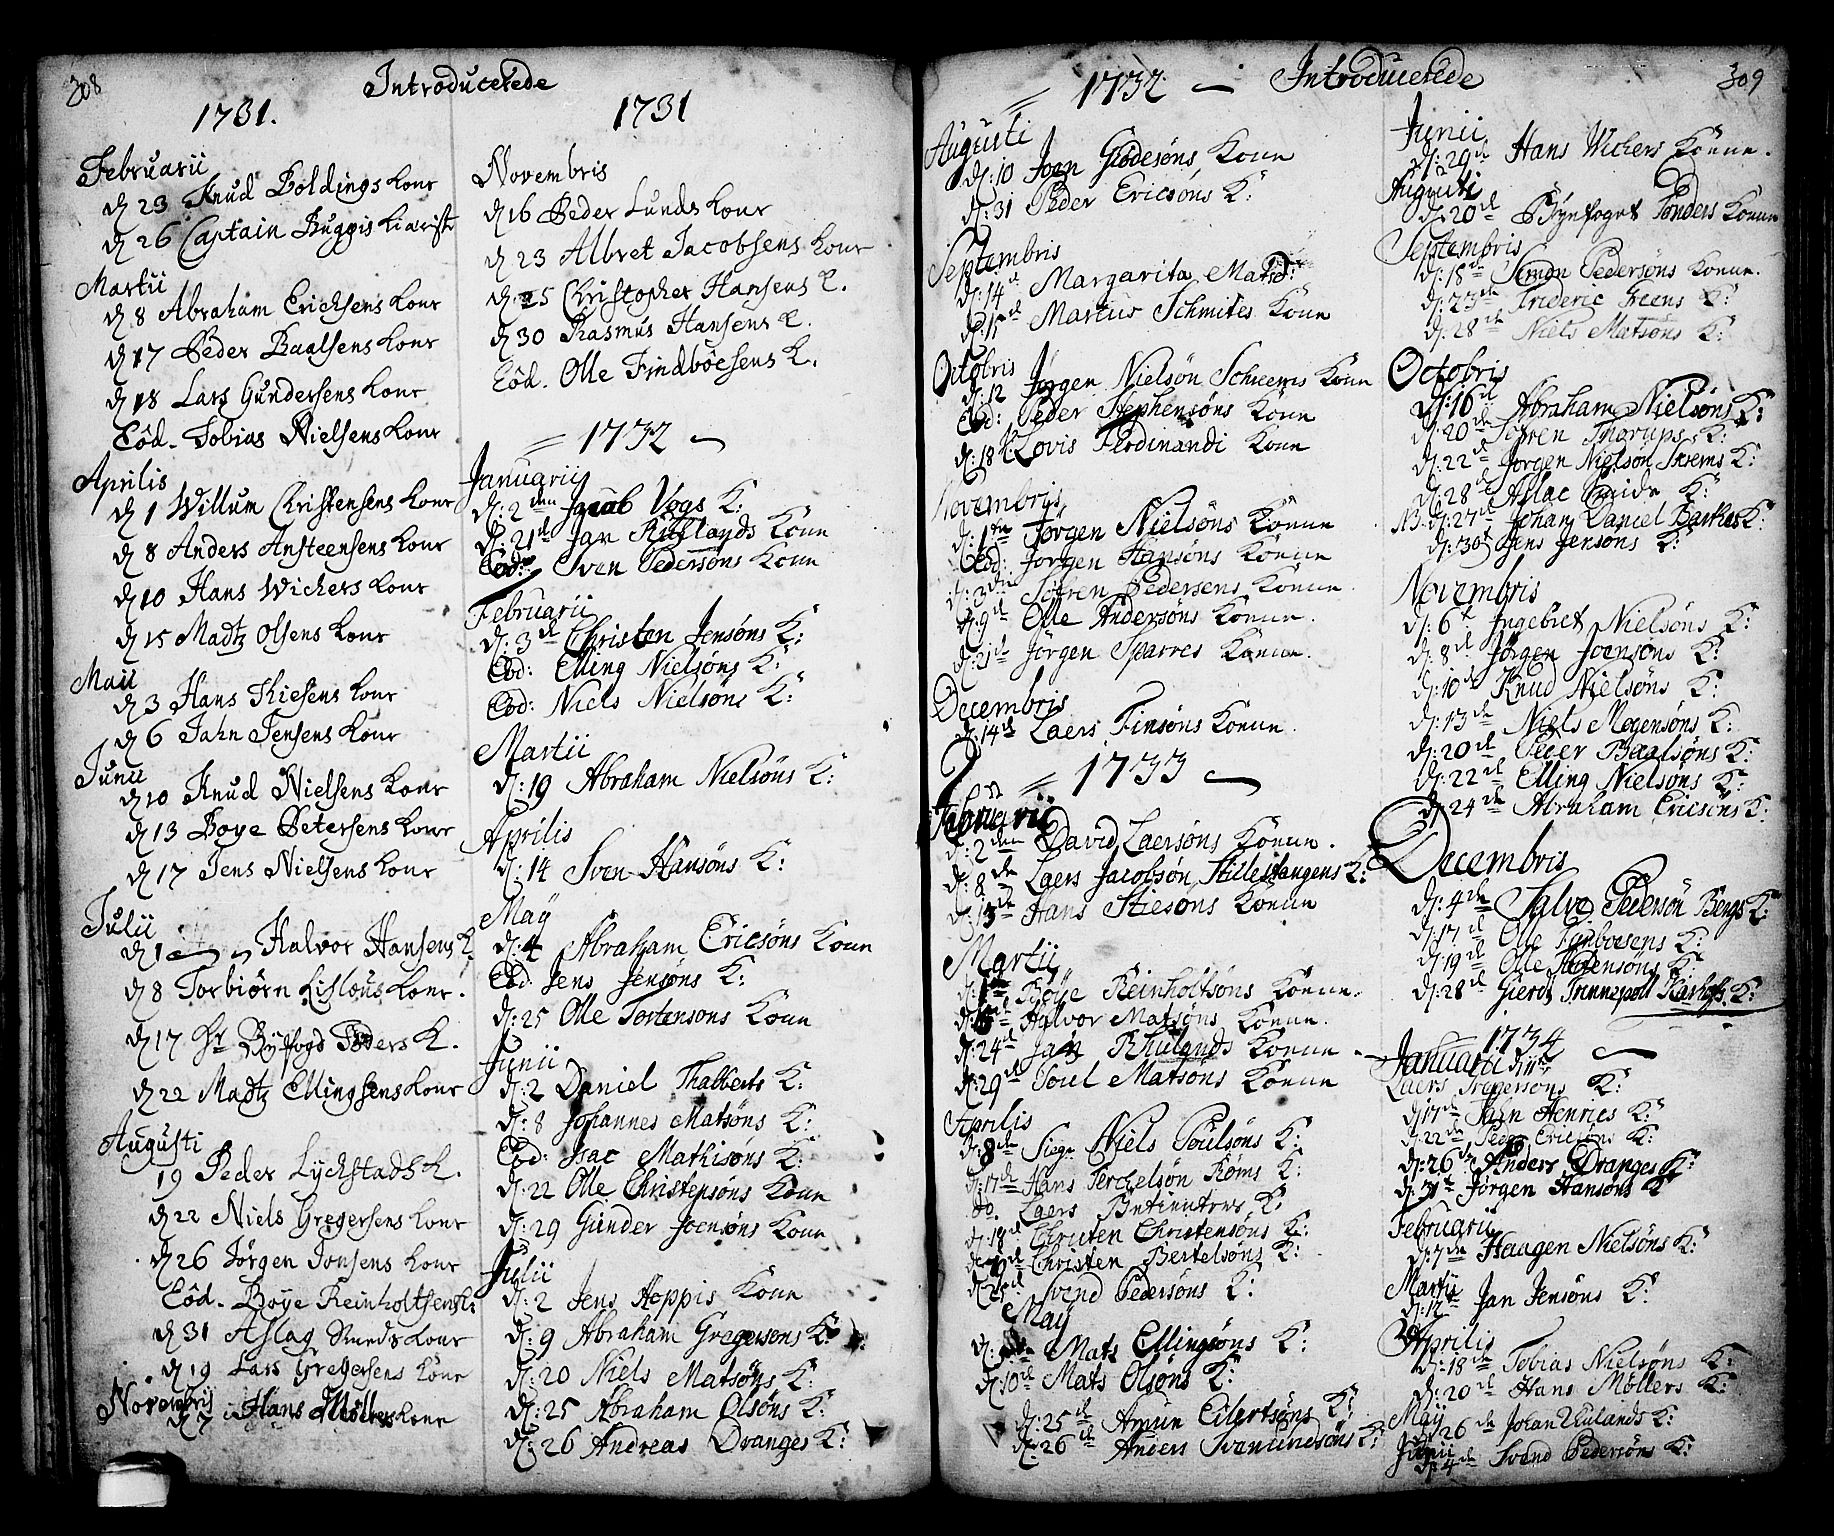 308
Introducerede
1731.
Februarii
d 23 Knud Boldings Kone
d 26 Captain Buggis
Martii
d 8 Abraham Erichsens Kone
d 17 Peder Baalsens Kone
d 18 Lars Gundersens Kone
Eôd. Tobias Nielsens Kone
Aprilis
d 1 Willum Christensens Kone
d 8 Anders Ansteensens Kone
d 10 Hans Wichers Kone
d 15 Madtz Olsens Kone
Maii
d 3 Hans Thiesens Kone
d 6 Jahn Jensens Kone
Junii
d 10 Knud Nielsens Kone
d 13 Boye Petersens Kone
d 17 Jens Nielsens Kone
Julii
d 1 Halvor Hansens K
d 8 Torbiørn Kone.
d 17 Hr Byfogd Tøders K.
d 22 Madtz Ellingsens Kone
Augusti
19 Peder Lychstads K.
d 22 Niels Gregersens Kone
d 26 Jørgen Jonsens Kone
Eôd. Boye Reinholtsens K:
d 31 Aslag Smeds Kone
d 19 Lars Gregersens Kone
Novembris
d 7 Hans Møllers Kone
1731
Novembris
d 16 Peder Lunds Kone
d 23 Albret Jacobsens Kone
d. 25 Christopher Hansens K.
d 30 Rasmus Hansens K.
Eôd. Olle Findboesens K.
1732
Januarii
d: 2 den Jacob Vogs K:
d: 21 d Jan Rulands Konn
Eod: Sven Pedersøns Konn
Februarii
d: 3 d Christen Jensøns K:
Eod: Elling Nielsøns K:
Eod: Niels Nielsøns K:
Martii
d: 19 Abraham Nielsøns K:
Aprilis
d: 14 Sven Hansøns K:
May
d: 4 Abraham Ericsøns Konn
Eod. Jens Jensøns K:
d: 25 Olle Tortensons Konn
Junii
d: 2 Daniel Thalberts K:
d: 8 Johannes Matsøns K:
Eod: Isac Mathisøns K:
d: 22 Olle Christensøns Konn
d: 29 Gunder Joensøns Konn
Julii
d: 2 Jens Hoppis Konn
d: 9 Abraham Gregersøns K:
d: 20 Niels Matsøns K:
d: 25 Abraham Olsøns K:
d: 26 Andreas Dranges K:
1732
Introducerede
309
Augusti
d: 10 Joen Giødesøns Konn
d: 31 Peder Ericsøns K:
Septembris
d: 14 d Margarita Matsd:
d: 15 d Marcus Schmites Konn
Octobris
d: 12 Jørgen Nielsøn Schreems Konn
Eod: Peder Stephensøns Konn
d: 18 Lovis Ferdinandi Konn
Novembris
d: 1 Jørgen Nielsøns Konne
Eod: Jørgen Hansøns Konne
d: 2 Søfren Pedersens Konne.
d: 9 d Olle Andersøns Konne.
d: 21 d Jørgen Sparres Konne.
Decembris
d: 14 d Laers Finsøns Konne.
1733
Februarii
d: 2 den David Laersøns Konne.
d: 8 de Laers Jacobsøn Hillestangens K:
d: 13 Hans Stiesøns Konne
Martii
d: 1 Bøye Reinholtsøns Konne.
d: Halvor Matsøns Konne.
d: 24 d Jan Rhulands Konne
d: 29 d Poul Matsøns Konne
Aprilis
d: 8 de Niels Poulsøns K:
d: 17 de Hans Terchelsøn Røms K:
do. Laers K:
d: 18 d Christen Christensøns K:
d: 19 d Christen Bertelsøns K:
d: 25 d Svend Pedersøns K:
May
d: Mats Ellingsøns K:
d: 10 d Mats Olsøns K:
d: 25 d Amun Eilertsøns K:
d: 26 d Anders Svanundsøns K:
Junii
d: 29 d Hans Wichers Konne.
Augusti
d: 20 d Byefoget Tønders Konne
Septembris
d: 18 d Simon Pedersøns Konne.
d: 23 d Frideric Greens K:
d: 28 d Niels Matsøns K:
Octobris
d: 16 d Abraham Nielsøns K:
d: 20 de Søfren Thorups K:
d: 22 d Jørgen Nielsøn Skrems K:
d: 28 d Aslac Smide K:
NB. d: 27 d Johan Daniel Barkes K:
d: 30 t Jens Jensøns K:
Novembris
d: 6 t Ingebret Nielsøns K:
d: 8 d Jørgen Joensøns K:
d: 10 d Knud Nielsøns K:
d: 13 d Niels Mogensøns K:
d: 20 d Peder Baalsøns K:
d: 22 d Elling Nielsøns K:
d: 24 de Abraham Ericsøns K:
Decembris
d: 4 de Salve Pedersøn Bergs K:
d: 17 d Olle Finboesens K:
d: 19 d Olle K:
d: 28 d Gierdt K:
1734
Januarii d: 11 te
Laers Gregersøns K:
d: 17 de Jahn Henrics K:
d: 22 de Peder Ericsøns K:
d: 26 de Anders Dranges K:
d: 31 t Jørgen Hansøns K:
Februarii
d: 7 de Haagen Nielsøns K:
Martii
d: 12 Jan Jensøns K:
Aprilis
d: 18 de Tobias Nielsøns K:
d: 20 d Hans Møllers K:
May
d: 26 de Johan Rulands K:
Junii
d: 4 de Svend Pedersøns K: